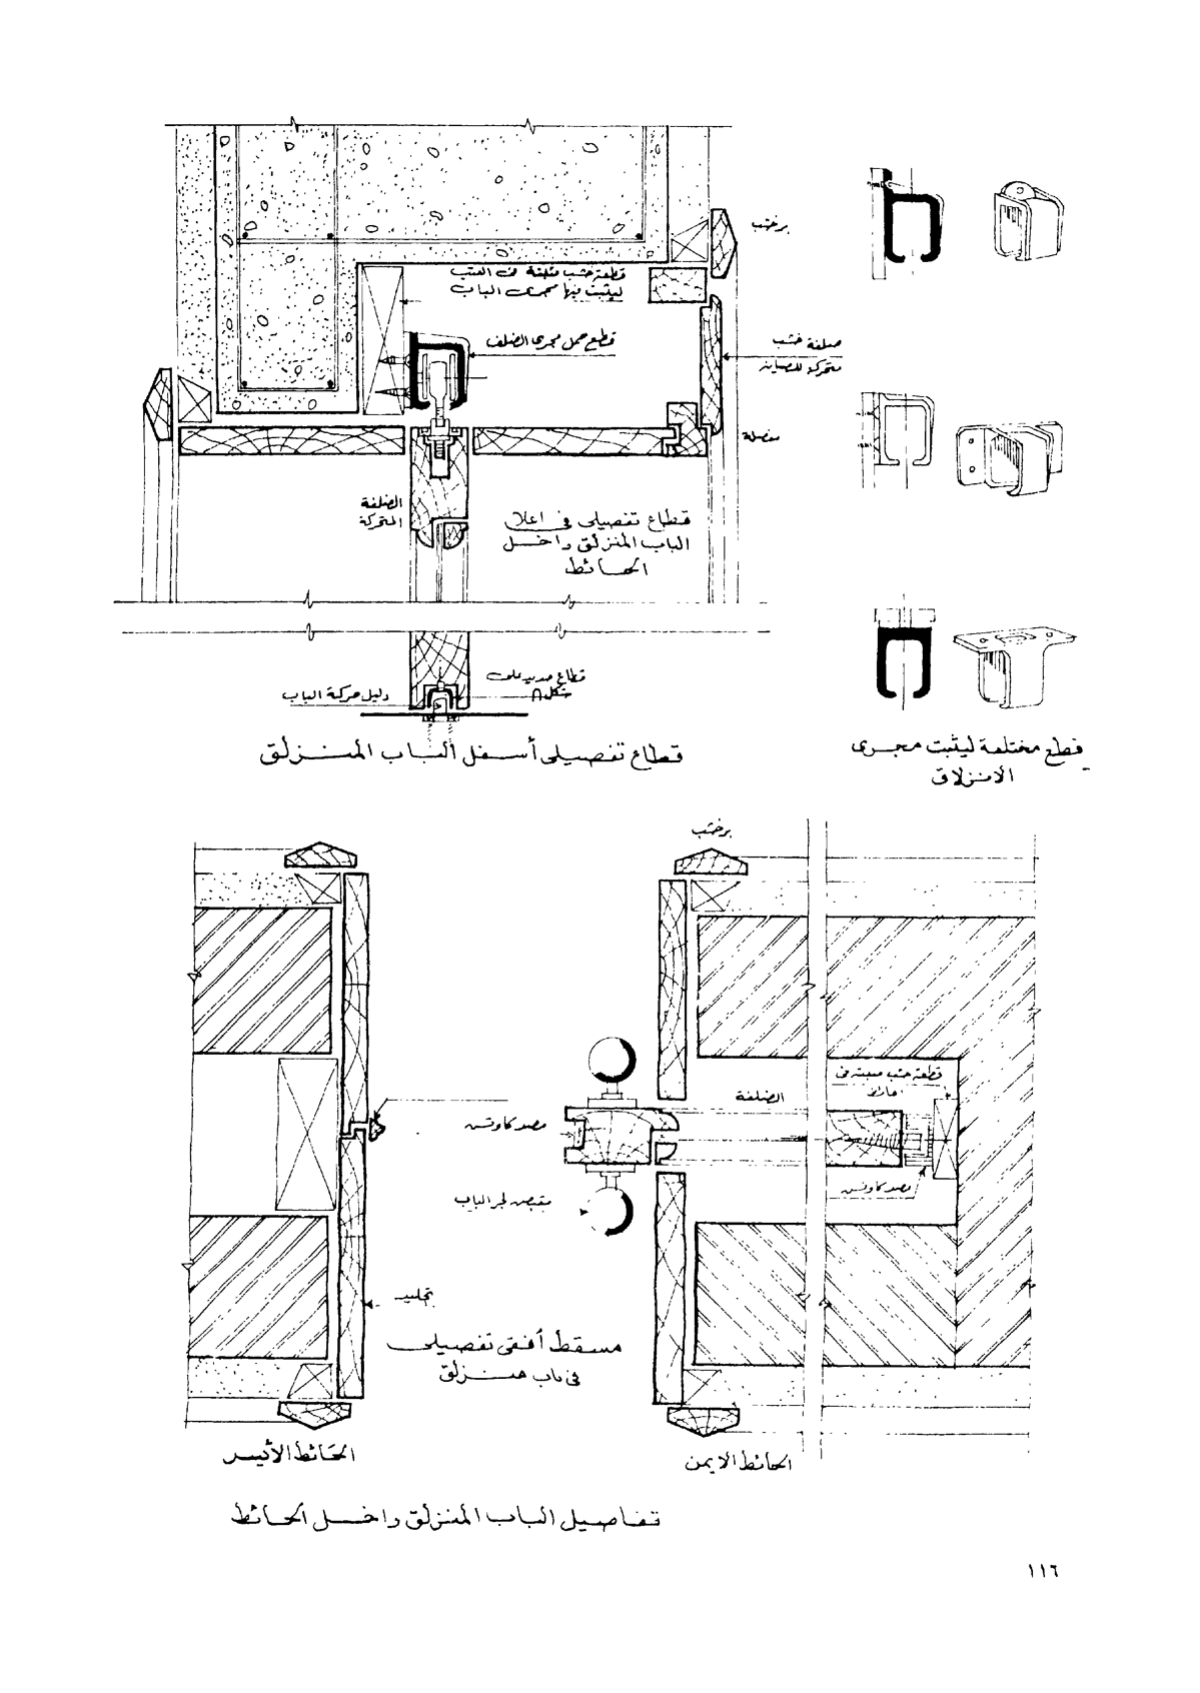 بر خشب
قطعة خشب مثبتة فى العتب
ليثبت فيها مجرى الباب
قطع حمل مجرى الضلف
ضلفة خشب
متحركة للصيانة
مفصلة
الضلفة
المتحركة
قطاع تفصيلى فى اعلا
الباب المنزلق داخل
الحائط
قطاع حديد على
شكل ٨
دليل حركة الباب
قطاع تفصيلى أسفل الباب المنزلق
قطع مختلفة ليثبت مجرى
الانزلاق
بر خشب
قطعة خشب مثبتة فى
الضلفة
مصد كاوتش
مصد كاوتش
مقبض لجر الباب
تجليد
مسقط أفقى تفصيلى
فى باب منزلق
الحائط الأيسر
الحائط الايمن
تفاصيل الباب المنزلق داخل الحائط
١١٦